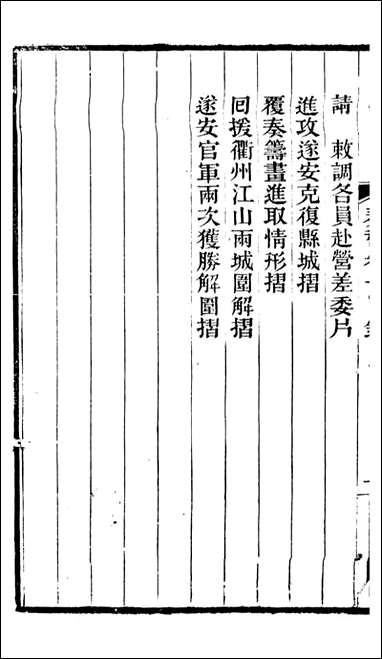 請　敕調各員赴營差委片
進攻遂安克復縣城摺
覆奏籌畫進取情形摺
回援衢州江山兩城圍解摺
遂安官軍兩次獲勝解圍摺